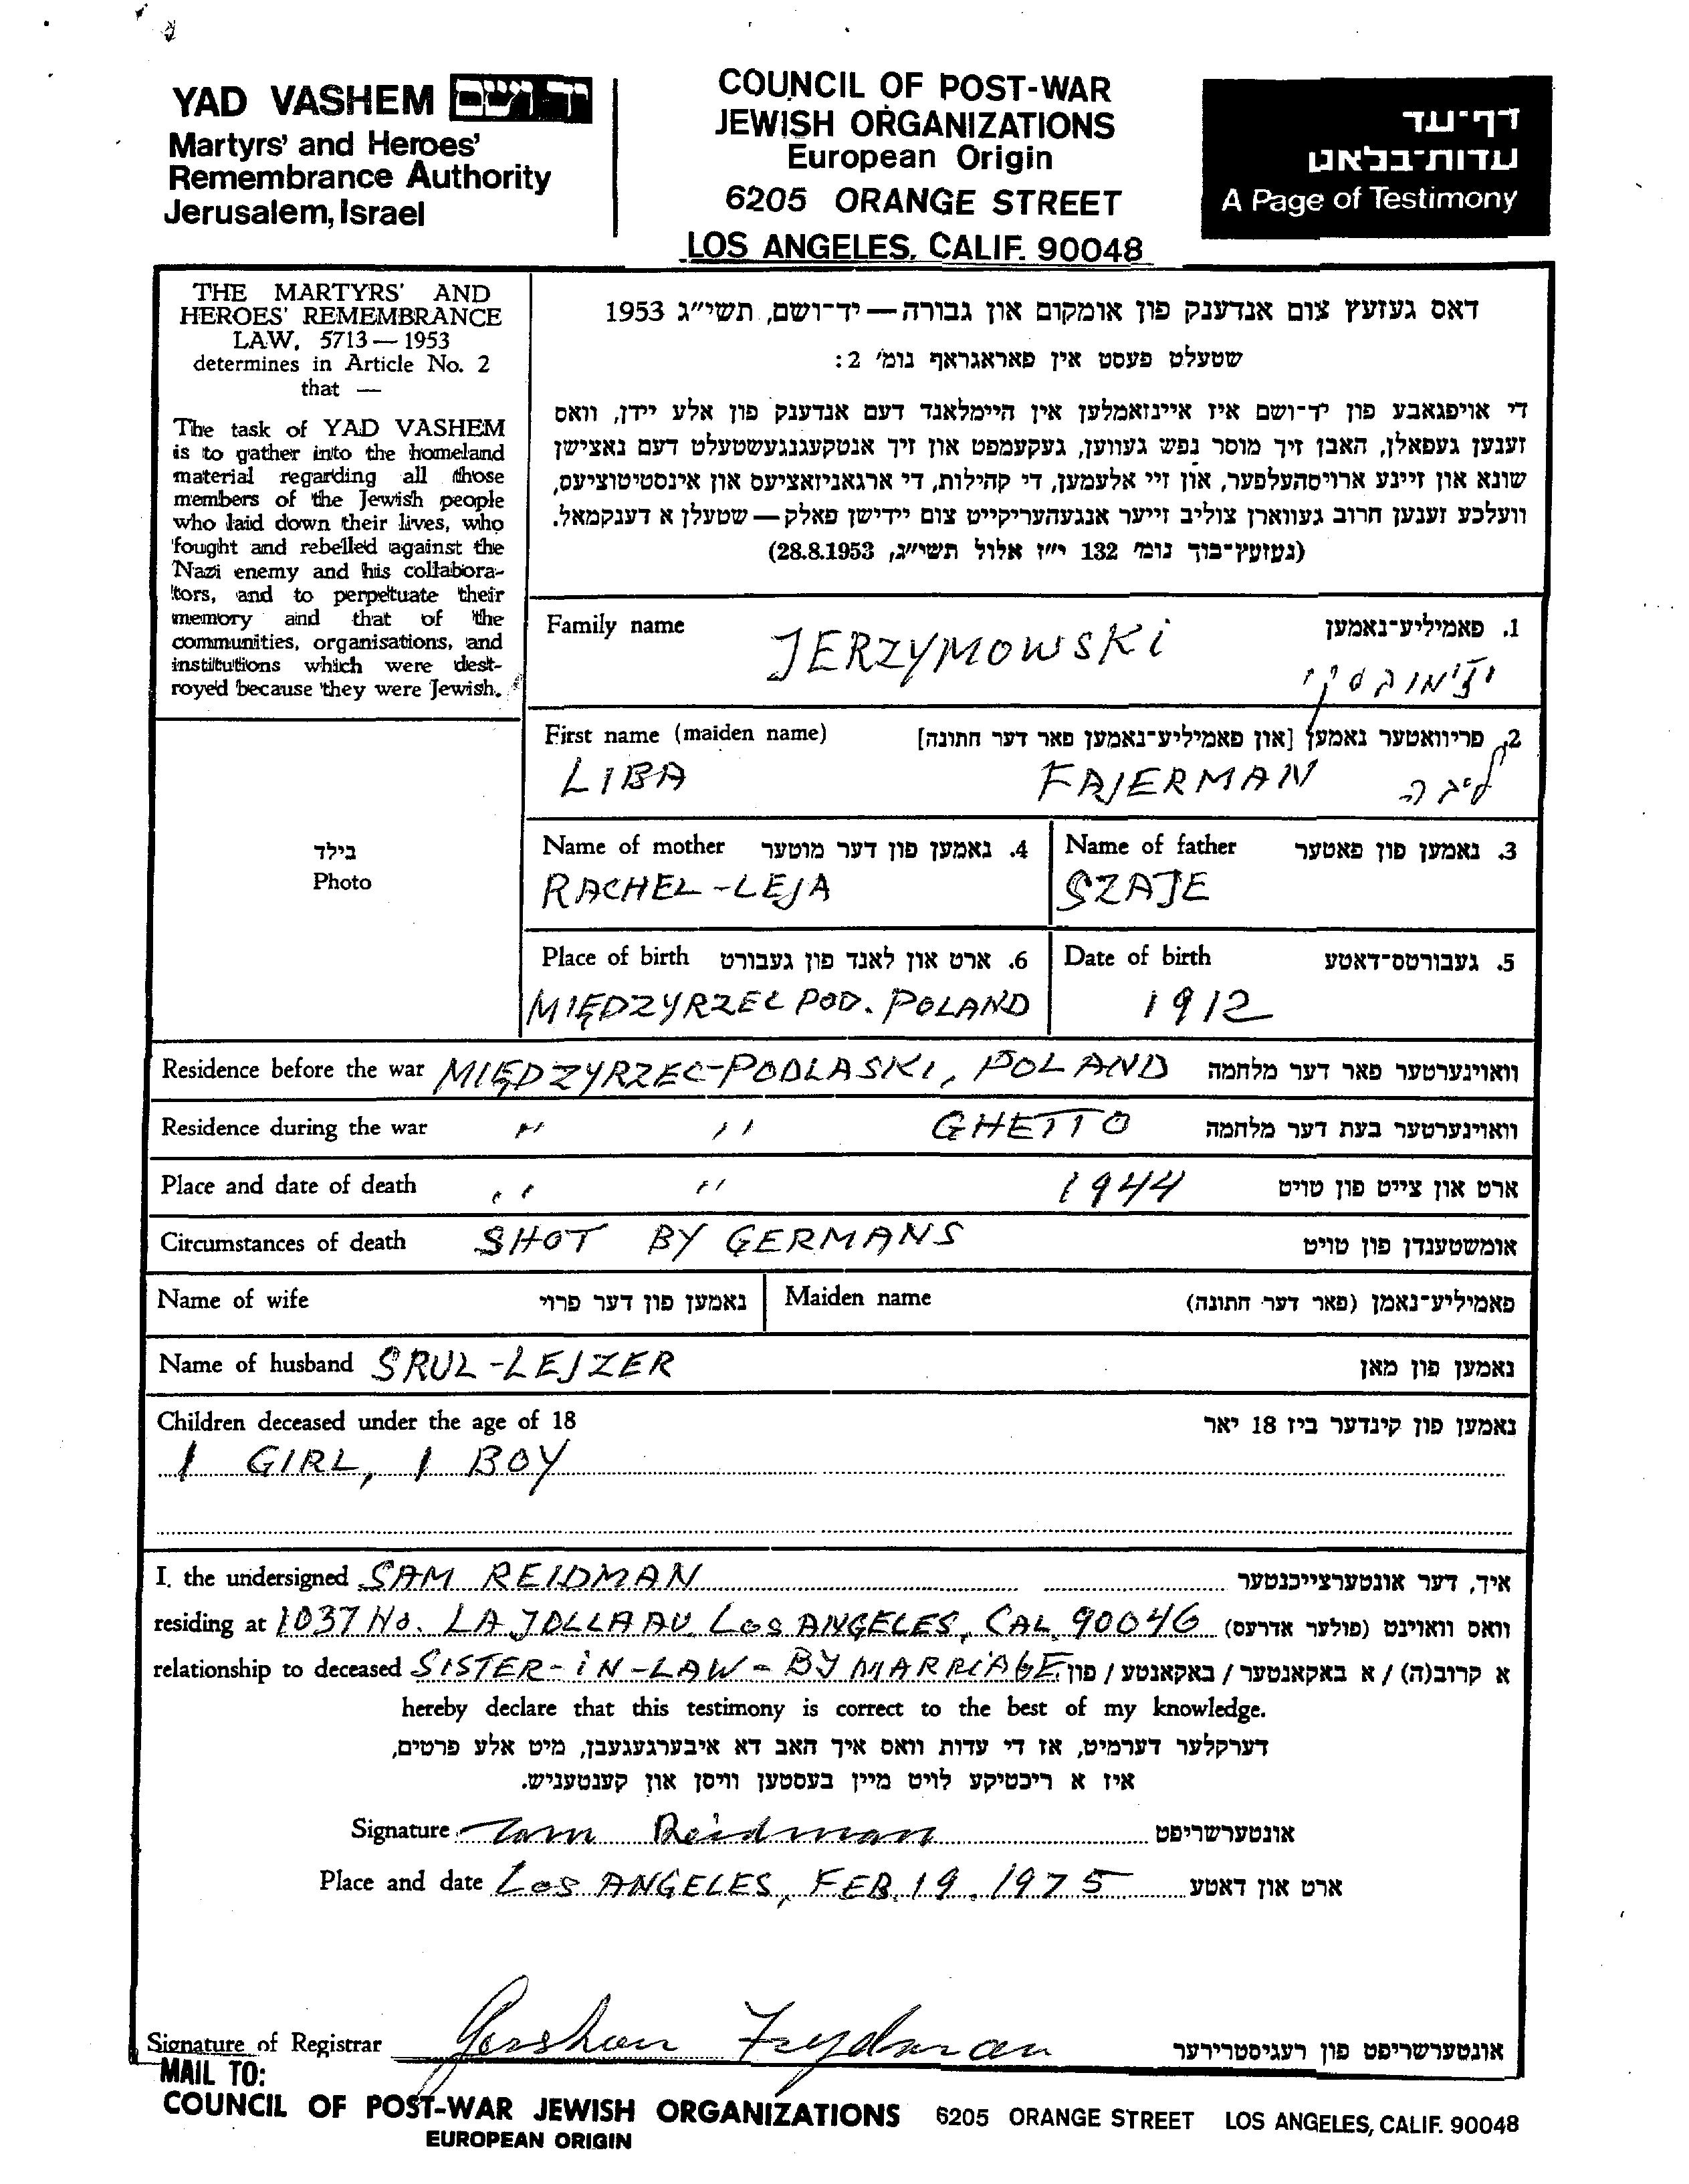 YAD VASHEM יד ושם
Martyrs' and Heroes'
Remembrance Authority
Jerusalem, Israel
COUNCIL OF POST-WAR
JEWISH ORGANIZATIONS
European Origin
6205 ORANGE STREET
LOS ANGELES, CALIF. 90048
דף-עד
עדות-בלאט
A Page of Testimony
THE MARTYRS' AND
HEROES' REMEMBRANCE
LAW, 5713—1953
determines in Article No. 2
that —
The task of YAD VASHEM
is to gather into the homeland
material regarding all those
members of the Jewish people
who laid down their lives, who
fought and rebelled against the
Nazi enemy and his collabora-
tors, and to perpetuate their
memory and that of the
communities, organisations, and
institutions which were dest-
royed because they were Jewish.
דאס געזעץ צום אנדענק פון אומקום און גבורה — יד-ושם, תשי"ג 1953
שטעלט פעסט אין פאראגראף נומ' 2:
די אויפגאבע פון יד-ושם איז איינזאמלען אין היימלאנד דעם אנדענק פון אלע יידן, וואס
זענען געפאלן, האבן זיך מוסר נפש געווען, געקעמפט און זיך אנטקעגנגעשטעלט דעם נאצישן
שונא און זיינע ארויסהעלפער, און זיי אלעמען, די קהילות, די ארגאניזאציעס און אינסטיטוציעס,
וועלכע זענען חרוב געווארן צוליב זייער אנגעהעריקייט צום יידישן פאלק — שטעלן א דענקמאל.
(געזעץ-בוך נומ' 132 י"ז אלול תשי"ג, 28.8.1953)
Family name JERZYMOWSKI 1. פאמיליע-נאמען
First name (maiden name) 2. פריוואטער נאמען [און פאמיליע-נאמען פאר דער חתונה]
LIBA FAJERMAN ליבה
בילד
Photo
Name of mother 4. נאמען פון דער מוטער Name of father 3. נאמען פון פאטער
RACHEL-LEJA SZAJE
Place of birth 6. ארט און לאנד פון געבורט Date of birth 5. געבורטס-דאטע
MIĘDZYRZEC POD. POLAND 1912
Residence before the war MIĘDZYRZEC-PODLASKI, POLAND וואוינערטער פאר דער מלחמה
Residence during the war " " GHETTO וואוינערטער בעת דער מלחמה
Place and date of death " " 1944 ארט און צייט פון טויט
Circumstances of death SHOT BY GERMANS אומשטענדן פון טויט
Name of wife נאמען פון דער פרוי Maiden name פאמיליע-נאמן (פאר דער חתונה)
Name of husband SRUL-LEJZER נאמען פון מאן
Children deceased under the age of 18 נאמען פון קינדער ביז 18 יאר
1 GIRL, 1 BOY
I, the undersigned SAM REIDMAN איך, דער אונטערצייכנטער
residing at 1037 No. LA JOLLA AV. LOS ANGELES, CAL. 90046 וואס וואוינט (פולער אדרעס)
relationship to deceased SISTER-IN-LAW-BY MARRIAGE א קרוב(ה) / א באקאנטער / באקאנטע / פון
hereby declare that this testimony is correct to the best of my knowledge.
דערקלער דערמיט, אז די עדות וואס איך האב דא איבערגעגעבן, מיט אלע פרטים,
איז א ריכטיקע לויט מיין בעסטען וויסן און קענטעניש.
Signature Sam Reidman אונטערשריפט
Place and date LOS ANGELES, FEB. 19. 1975 ארט און דאטע
Signature of Registrar Gershon Frydman אונטערשריפט פון רעגיסטרירער
MAIL TO:
COUNCIL OF POST-WAR JEWISH ORGANIZATIONS 6205 ORANGE STREET LOS ANGELES, CALIF. 90048
EUROPEAN ORIGIN